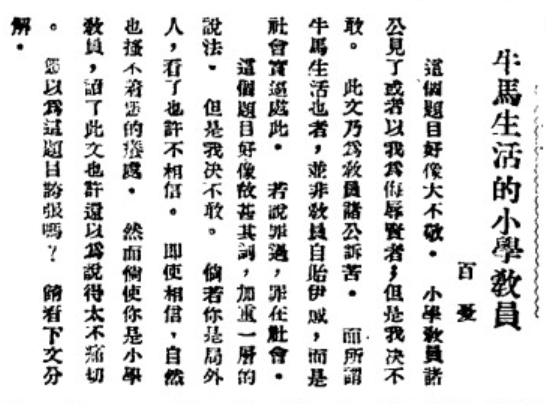 牛馬生活的小學教員
百憂
這個題目好像大不敬。小學教員諸
公見了或者以我爲侮辱賢者,但是我决不
敢。此文乃爲教員諸公訴苦。而所謂
牛馬生活也者,並非教員自貽伊戚,而是
社會實逼處此。若說罪過,罪在社會。
這個題目好像故甚其詞,加重一層的
說法。但是我決不敢。倘若你是局外
人,看了也許不相信。即使相信,自然
也搔不着您的癢處。然而倘使你是小學
教員,讀了此文也許還以爲說得太不痛切
。您以爲這題目誇張嗎?請看下文分
解。